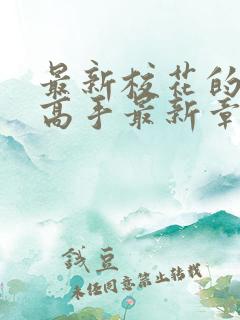 最新校花的
高手最新章
钱豆
未经同意禁止转载